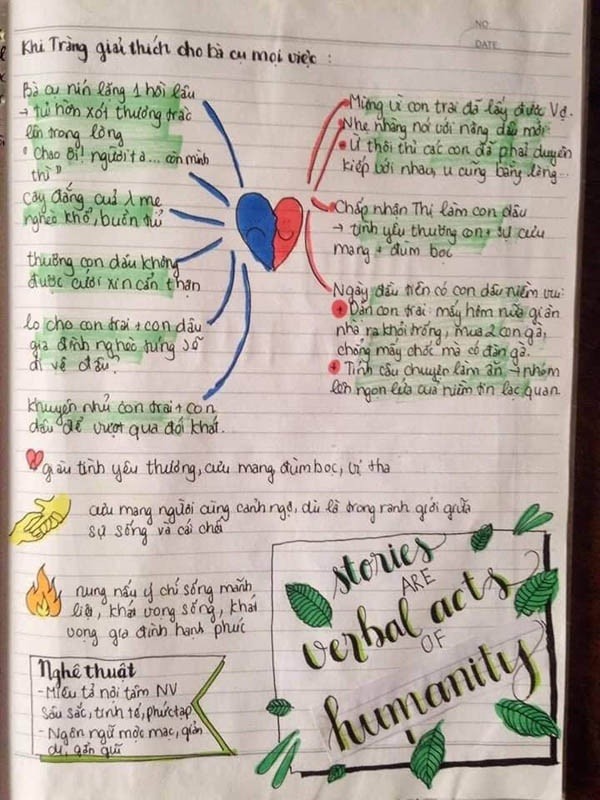 NO
DATE
Khi Tràng giải thích cho bà cụ mọi việc :
Bà cụ nín lặng 1 hồi lâu
→ tủi hờn xót thương trào
lên trong lòng
"Chao ôi! người ta... còn mình
thì"
Cay đắng của λ mẹ
nghèo khổ, buồn tủi
thương con dâu không
được cưới xin cẩn thận
lo cho con trai + con dâu
gia đình nghèo túng sẽ
đi về đâu?
khuyên nhủ con trai + con
dâu để vượt qua đói khát.
Mừng vì con trai đã lấy được vợ.
Nhẹ nhàng nói với nàng dâu mới
Ừ thôi thì các con đã phải duyên
kiếp với nhau, u cũng bằng lòng...
Chấp nhận Thị làm con dâu
→ tình yêu thương con + sự cưu
mang + đùm bọc
Ngày đầu tiên có con dâu niềm vui:
+ Dặn con trai: mấy hôm nữa gian
nhà ra khỏi trống, mua 2 con gà,
chẳng mấy chốc mà có đàn gà.
+ Tính câu chuyện làm ăn → nhóm
lên ngọn lửa của niềm tin lạc quan.
giàu tình yêu thương, cưu mang đùm bọc, vị tha
cưu mang người cùng cảnh ngộ, dù là trong ranh giới giữa
sự sống và cái chết
nung nấu ý chí sống mãnh
liệt, khát vọng sống, khát
vọng gia đình hạnh phúc
Nghệ thuật
- Miêu tả nội tâm NV
sâu sắc, tinh tế, phức tạp
- Ngôn ngữ mộc mạc, giản
dị, gần gũi
stories
ARE
verbal acts
OF
humanity